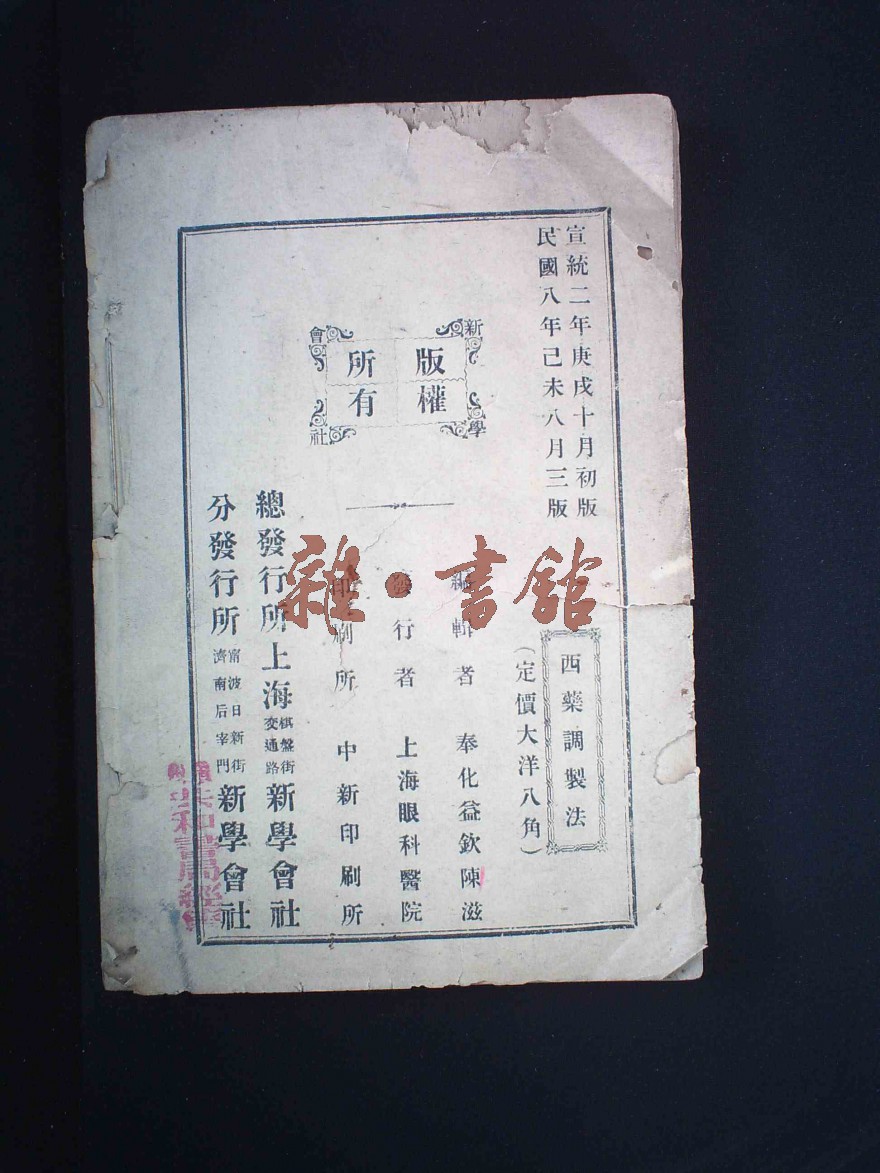 宣統二年庚戌十月初版
民國八年己未八月三版
西藥調製法
(定價大洋八角)
編輯者 奉化益欽陳滋
發行者 上海眼科醫院
印刷所 中新印刷所
新學會社
版權所有
總發行所上海棋盤街交通路新學會社
分發行所甯波日新街濟南后宰門新學會社
共和書局經售
雜·書館